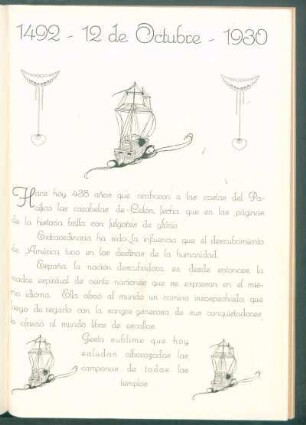 1492 - 12 de Octubre - 1930
Hace hoy 438 años que arribaron a las costas del Pa-
cífico las carabelas de Colón, fecha que en las páginas
de la historia brilla con fulgores de gloria
Extraordinaria ha sido la influencia que el descubrimiento
de América tuvo en los destinos de la humanidad.
España la nación descubridora, es desde entonces la
madre espiritual de veinte naciones que se expresan en el mis-
mo idioma. Ella abrió al mundo un camino insospechado que
luego de regarlo con la sangre generosa de sus conquistadores
lo ofreció al mundo libre de escollos.
Gesta sublime que hoy
saludan alborozadas las
campanas de todos los
templos